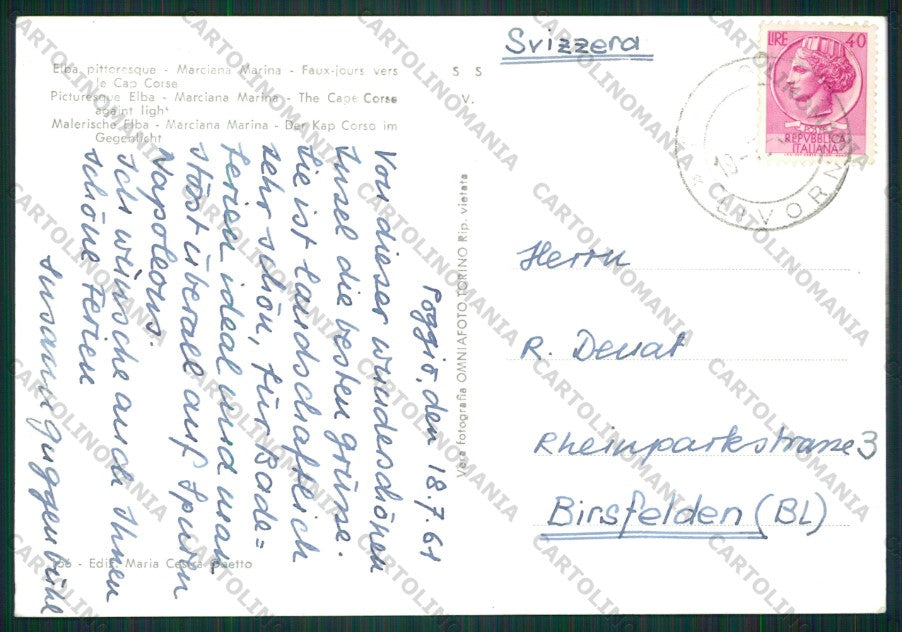 Svizzera
LIRE 40
REPVBBLICA
ITALIANA
Elba pittoresque - Marciana Marina - Faux-jours vers
le Cap Corse
Picturesque Elba - Marciana Marina - The Cape Corse
againt light
Malerische Elba - Marciana Marina - Der Kap Corso im
Gegenlicht
S S
V.
Poggio, den 18.7.61
Von dieser wunderschönen
Insel die besten Grüsse.
Sie ist landschaftlich
sehr schön, für Bade=
ferien ideal und man
stösst überall auf Spuren
Napoleons.
Ich wünsche auch Ihnen
schöne Ferien
Susanne Guggenbühl
Vera fotografia OMNIAFOTO TORINO Rip. vietata
Herrn
R. Denat
Rheinparkstrasse 3
Birsfelden (BL)
Edit. Maria
CARTOLINOMANIA